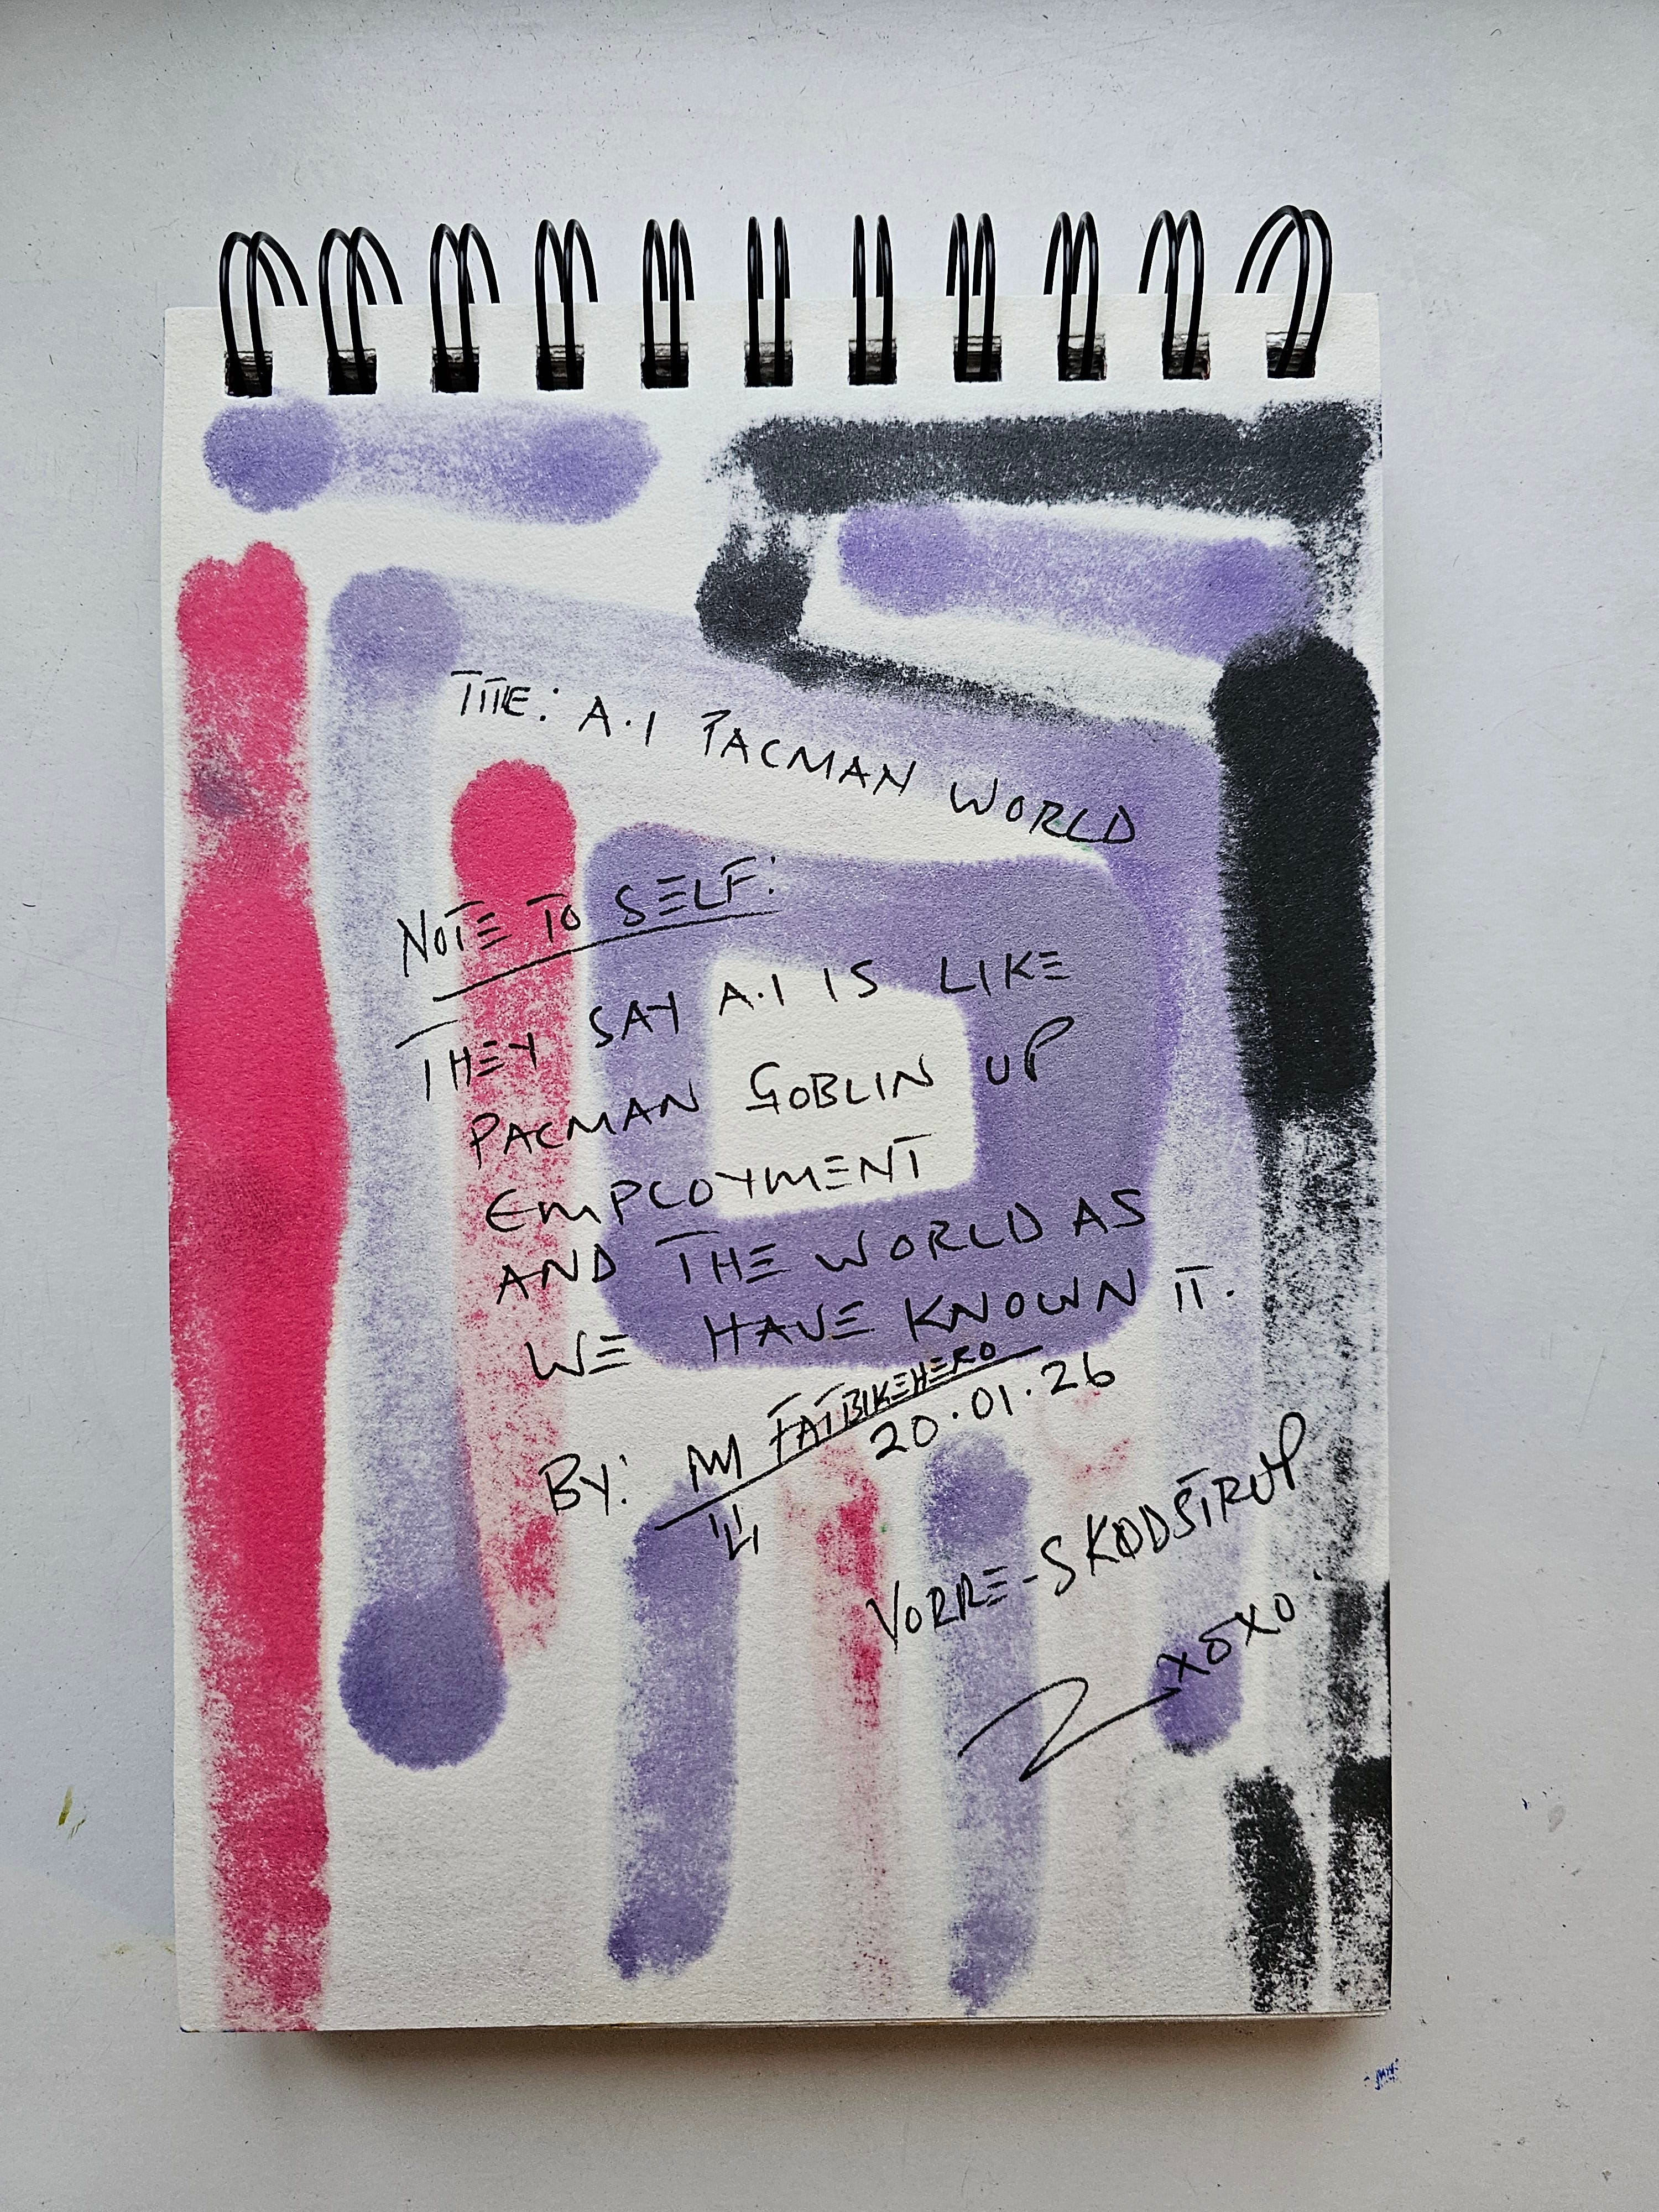 TITLE: A.I PACMAN WORLD
NOTE TO SELF:
THEY SAY A.I IS LIKE
PACMAN GOBLIN UP
EMPLOYMENT
AND THE WORLD AS
WE HAVE KNOWN IT.
BY: FATBIKEHERO
20.01.26
VORRE-SKØDSTRUP
XOXO